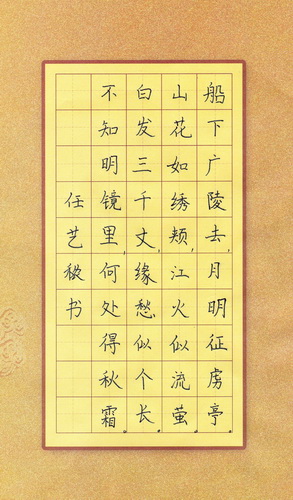 船下广陵去,月明征虏亭。
山花如绣颊,江火似流萤。
白发三千丈,缘愁似个长。
不知明镜里,何处得秋霜。
任艺书